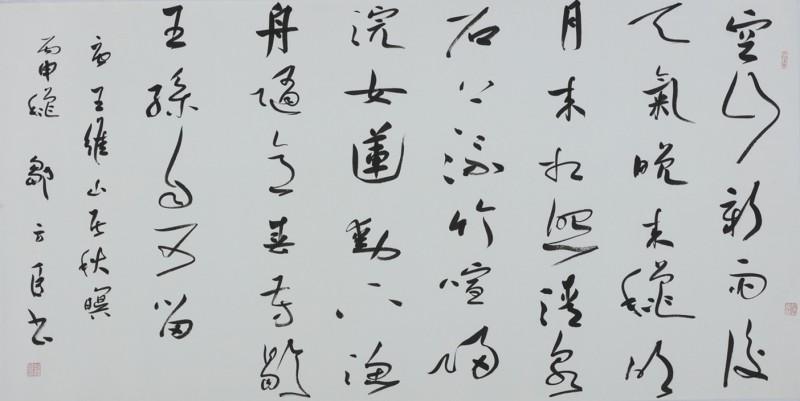 空山新雨後
天氣晚来龝明
月松間照清泉
石上流竹喧歸
浣女蓮動下漁
舟隨意春芳歇
王孫自可留
王維山居秋暝
丙申龝鄒方臣书